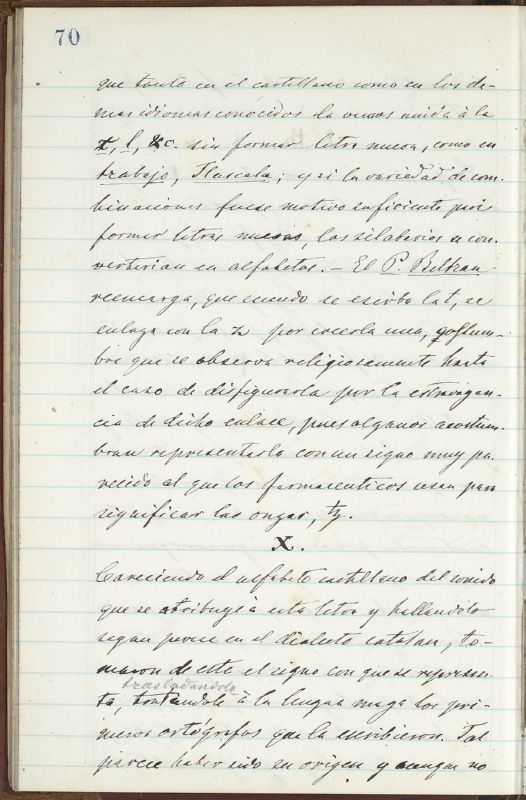 70
que tanto en el castellano como en los de-
mas idiomas conocidos la vemos unida à la
r, l, &c. sin formar letra nueva, como en
trabajo, Tlascala; y si la variedad de com-
binaciones fuese motivo suficiente para
formar letras nuevas, los silabarios se con-
vertirian en alfabetos. - El P. Beltran
reencarga, que cuando se escriba la t, se
enlaza con la z por cocerla una, costum-
bre que se observa religiosamente hasta
el caso de disfigurarla por la estravagan-
cia de dicho enlace, pues algunos acostum-
bran representarla con un signo muy pa-
recido al que los farmaceuticos usan para
significar las onzas, tz.
X.
Careciendo el alfabeto castellano del sonido
que se atribuye à esta letra y hallandolo
segun parece en el dialecto catalan, to-
maron de este el signo con que se represen-
trasladandole
ta, à la lengua maya los pri-
meros ortógrafos que la escribieron. Tal
parece haber sido su origen y aunque no